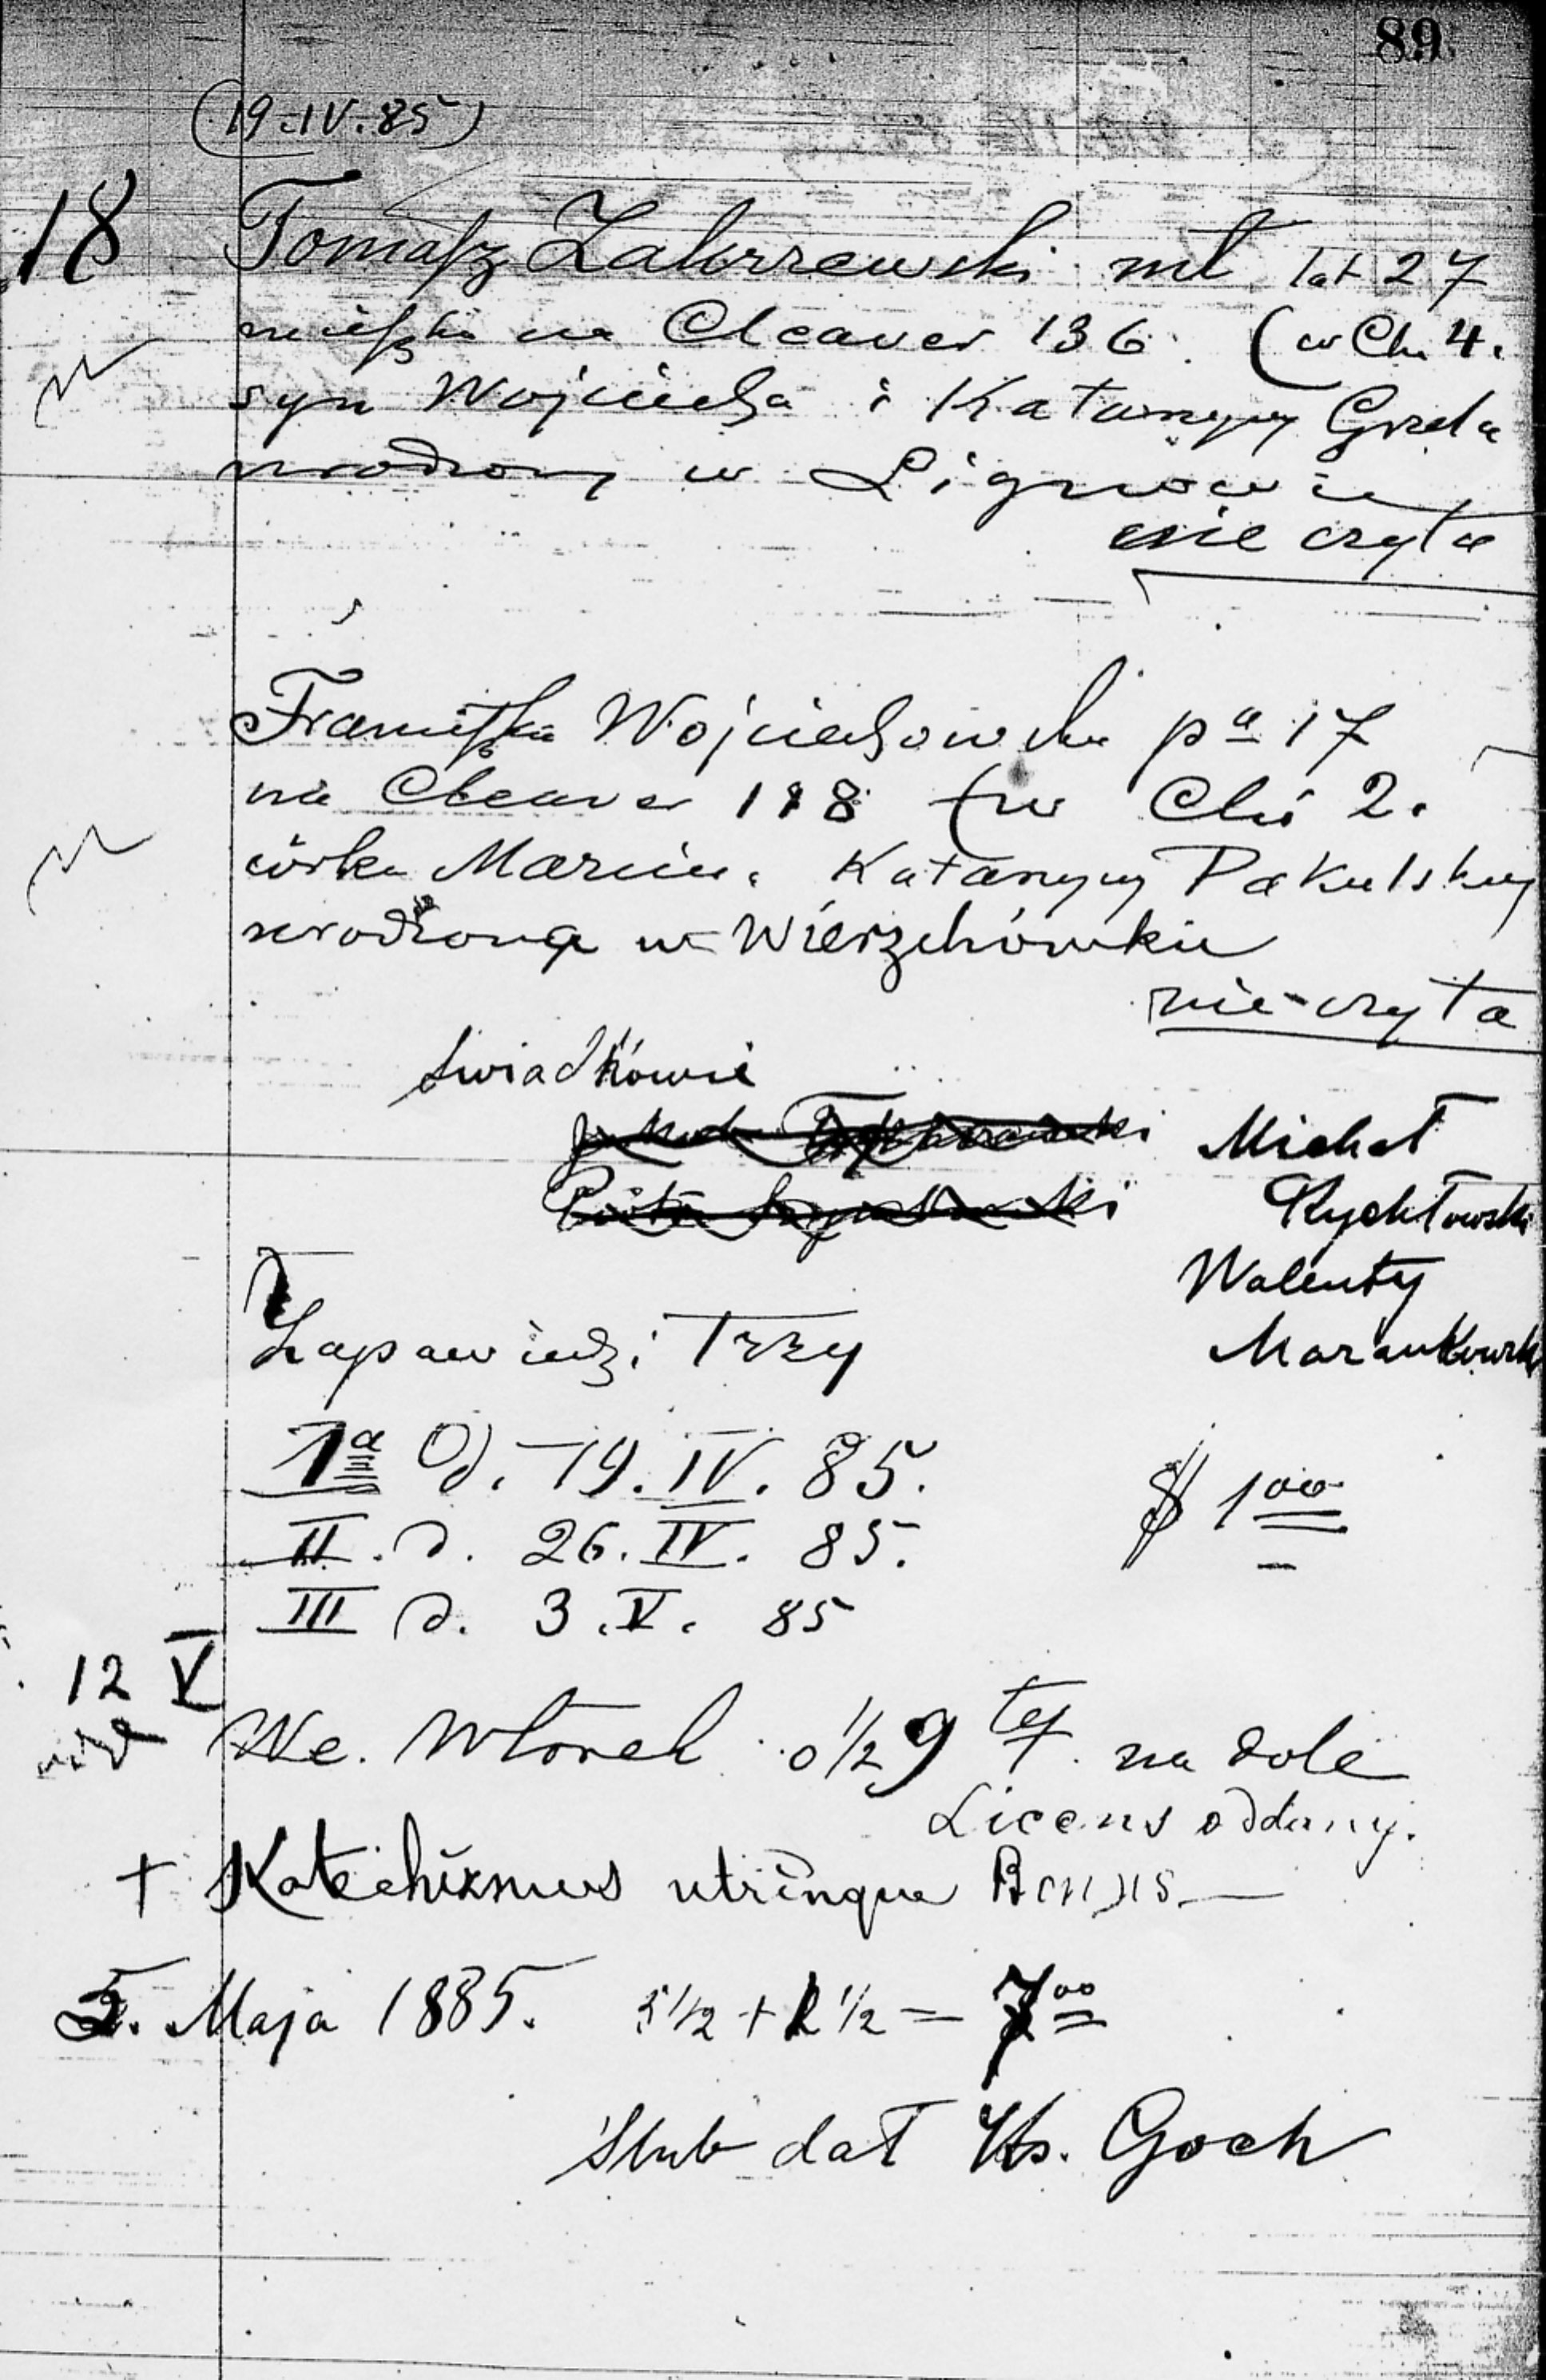 89
(19.IV.85)
18 Tomasz Zakrzewski mł lat 27
mieszka na Cleaver 136. (w Chi 4.
syn Wojciecha i Katarzyny Grzela
urodzony w Lignowie
nie czyta
Franciszka Wojciechowska pa 17
na Cleaver 118 (w Chi 2.
córka Marcin. Katarzyny Pakulskiej
urodzona w Wierzchówkie
nie czyta
Świadkowie
Michał
Rychłowski
Walenty
Zapowiedzi Trzy
1a d. 19.IV.85.
$ 1 00
II. d. 26.IV.85.
III d. 3.V.85
12 V
We. Wtorek o ½ 9 tej na dole
Licens oddany.
† Katechizmus utrinque
5. Maja 1885. 5½ + 1½ = 7 00
Ślub dał Ks. Goch